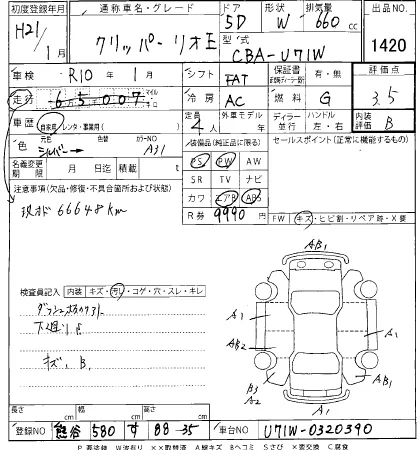 初度登録年月 通称車名・グレード ドア 形状 排気量 出品NO.
H21/1月 クリッパーリオ E 5D W 660cc 1420
型式 CBA-U71W
車検 R10年1月 シフト FAT 保証書 有・無 評価点
走行 65007 マイル キロ 冷房 AC 燃料 G 3.5
車歴 自家用 レンタ・事業用( ) 定員 4人 外車モデル ディーラー 並行 ハンドル 左・右 内装評価 B
色 シルバー 色替 カラーNO A31 装備品(純正品に限る) セールスポイント(正常に機能するもの)
名義変更期限 月 日迄 積載 t PS PW AW
注意事項(欠品・修復・不具合箇所および状態) SR TV ナビ
現オド 66648km カワ エアB ABS
R券 9990 FW キズ・ヒビ割・リペア跡・X要
AB1
検査員記入 内装 キズ・汚れ・コゲ・穴・スレ・キレ
A1 A1
下廻りS AB2 A1
キズ、B、 B3 A2 AB1
A1
長さ cm 幅 cm 高さ cm
登録NO 熊谷 580 す 88-35 車台NO U71W-0320390
P 要塗装 W波有り XX取替済 A線キズ Bヘコミ Sさび X要交換 C腐食